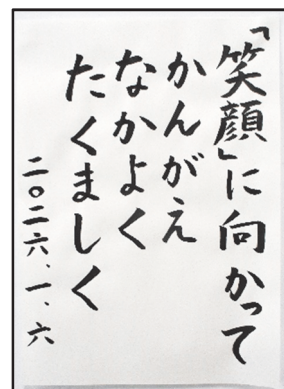 「笑顔」に向かって
かんがえ
なかよく
たくましく
二〇二六、一、六